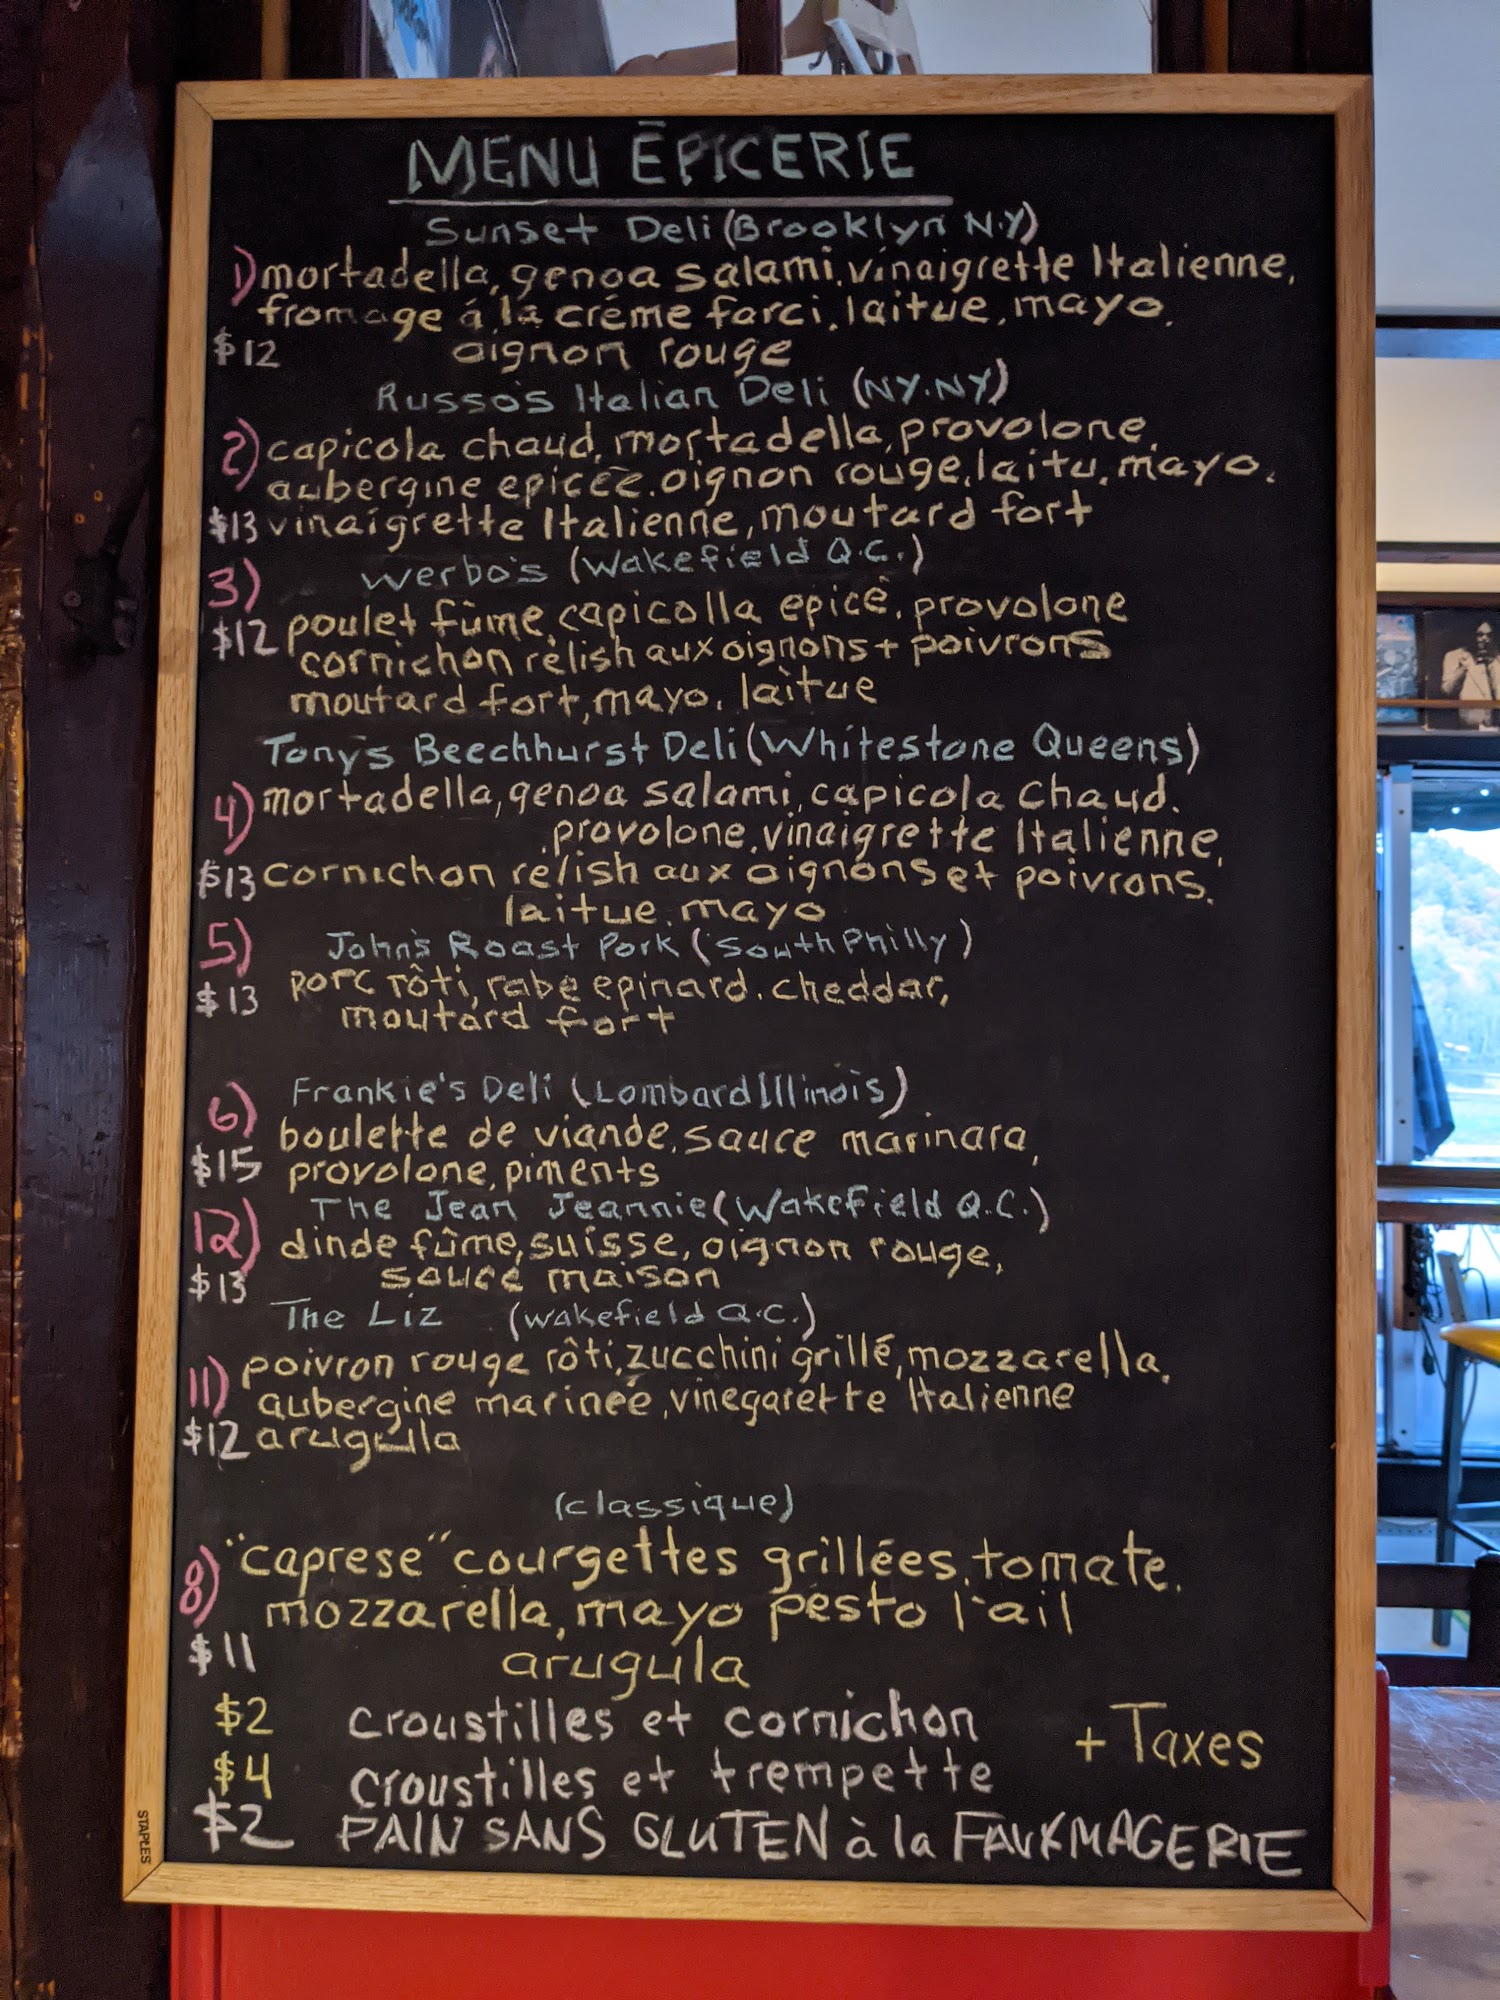 MENU ÉPICERIE
Sunset Deli (Brooklyn N.Y)
1) mortadella, genoa salami, vinaigrette Italienne,
fromage á la créme farci, laitue, mayo,
$12 oignon rouge
Russo's Italian Deli (NY.NY)
2) capicola chaud, mortadella, provolone,
aubergine epicée, oignon rouge, laitu, mayo,
$13 vinaigrette Italienne, moutard fort
3) Werbo's (Wakefield Q.C.)
$12 poulet fûme, capicolla epicé, provolone
cornichon rélish aux oignons + poivrons
moutard fort, mayo, laitue
Tony's Beechhurst Deli (Whitestone Queens)
4) mortadella, genoa salami, capicola chaud,
provolone, vinaigrette Italienne,
$13 cornichon relish aux oignons et poivrons,
laitue, mayo
5) John's Roast Pork (South Philly)
$13 porc rôti, rabe epinard, cheddar,
moutard fort
6) Frankie's Deli (Lombard Illinois)
boulette de viande, sauce marinara,
$15 provolone, piments
The Jean Jeannie (Wakefield Q.C.)
12) dinde fûme, suisse, oignon rouge,
$13 sauce maison
The Liz (Wakefield Q.C.)
11) poivron rouge rôti, zucchini grillé, mozzarella,
aubergine marineé, vinegarette Italienne
$12 arugula
(classique)
8) "caprese" courgettes grillées, tomate,
mozzarella, mayo pésto l'ail
$11 arugula
$2 croustilles et cornichon
+ Taxes
$4 croustilles et trempette
$2 PAIN SANS GLUTEN à la FAUXMAGERIE
STAPLES